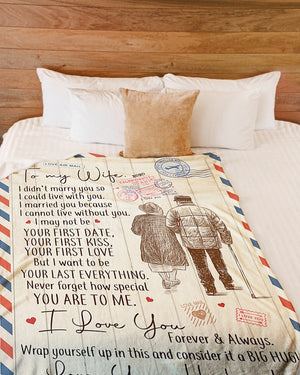 LOVE AIR MAIL
To my Wife,
I didn't marry you so
I could live with you.
I married you because
I cannot live without you.
I may not be
YOUR FIRST DATE,
YOUR FIRST KISS,
YOUR FIRST LOVE
But I want to be
YOUR LAST EVERYTHING.
Never forget how special
YOU ARE TO ME.
I Love You
Forever & Always.
Wrap yourself up in this and consider it a BIG HUG